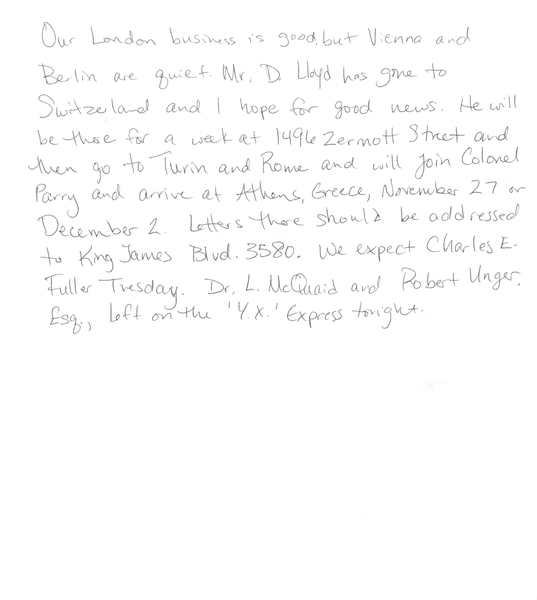 Our London business is good, but Vienna and
Berlin are quiet. Mr. D. Lloyd has gone to
Switzerland and I hope for good news. He will
be there for a week at 1496 Zermott Street and
then go to Turin and Rome and will join Colonel
Parry and arrive at Athens, Greece, November 27 or
December 2. Letters there should be addressed
to King James Blvd. 3580. We expect Charles E.
Fuller Tuesday. Dr. L. McQuaid and Robert Unger,
Esq., left on the 'Y.X.' Express tonight.